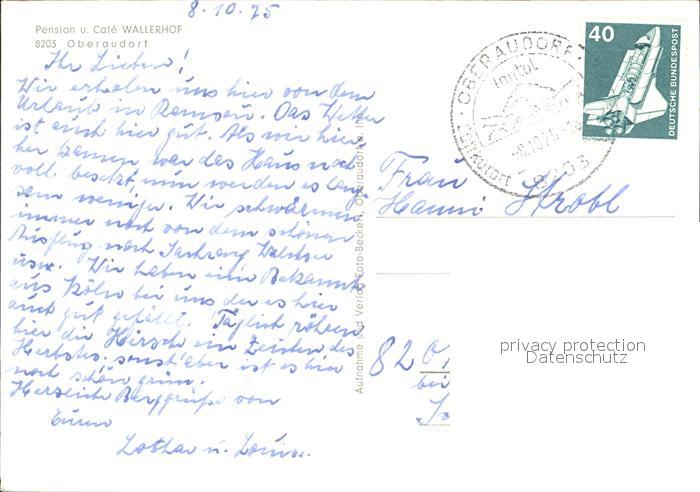 8.10.75
Pension u. Café WALLERHOF
8203 Oberaudorf
Ihr Lieben!
Wir erholen uns hier von dem
Urlaub in Ramsau. Das Wetter
ist auch hier gut. Als wir hier-
her kamen war das Haus noch
voll besetzt, nun werden es lang-
sam weniger. Wir schwärmen
immer noch von dem schönen
Ausflug nach Sachrang Walchsee
usw. Wir haben eine Bekannte
aus Köln bei uns der es hier
auch gut gefällt. Täglich röhren
hier die Hirsche ein Zeichen des
Herbstes, sonst aber ist es hier
noch schön grün.
Herzliche Berggrüße von
Euren
Lothar u. Louise.
Aufnahme und Verlag Foto-Beckert, Oberaudorf/Inn
OBERAUDORF
Inntal
Luftkurort
-8.10.75
8203
40
DEUTSCHE BUNDESPOST
Frau
Hanni Strobl
8201
bei
privacy protection
Datenschutz